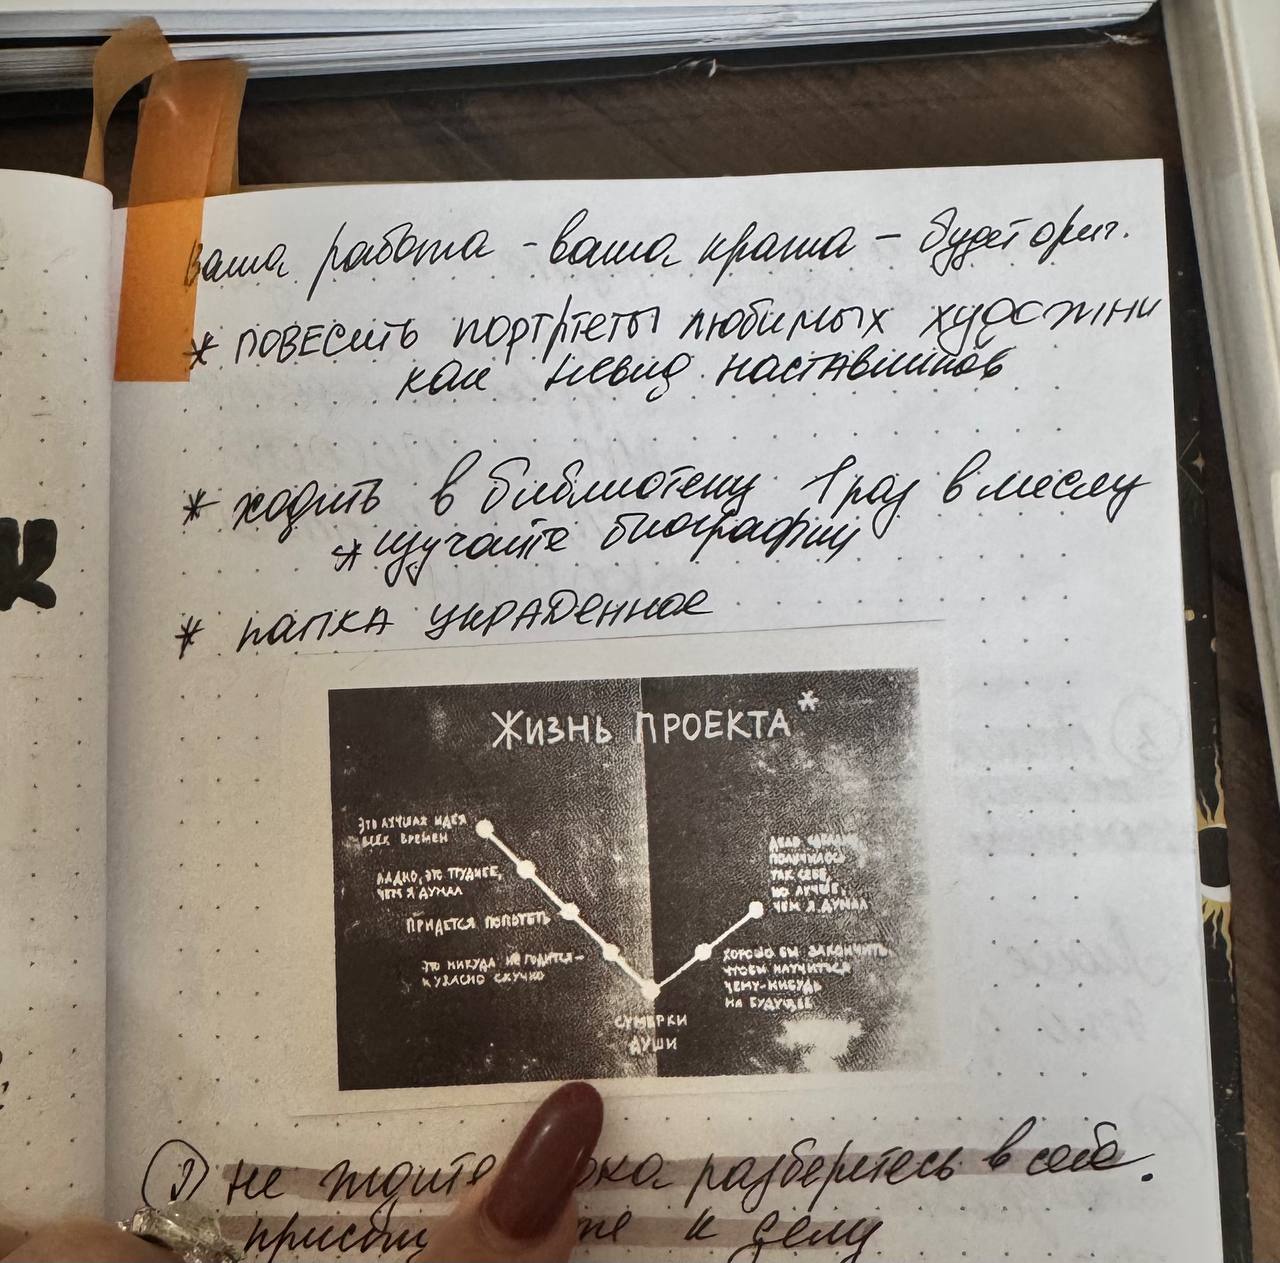 ваша работа - ваша кража - будет ориг.
* ПОВЕСИТЬ ПОРТРЕТЫ ЛЮБИМЫХ ХУДОЖНИ
как невид наставников
* ходить в библиотеку 1 раз в месяц
* изучайте биографии
* ПАПКА УКРАДЕННОЕ
ЖИЗНЬ ПРОЕКТА*
ЭТО ЛУЧШАЯ ИДЕЯ
ВСЕХ ВРЕМЕН
ЛАДНО, ЭТО ТРУДНЕЕ,
ЧЕМ Я ДУМАЛ
ПРИДЕТСЯ ПОПОТЕТЬ
ЭТО НИКУДА НЕ ГОДИТСЯ -
УЖАСНО СКУЧНО
СУМЕРКИ
ДУШИ
ХОРОШО БЫ ЗАКОНЧИТЬ,
ЧТОБЫ НАУЧИТЬСЯ
ЧЕМУ-НИБУДЬ
НА БУДУЩЕЕ
ПОЛУЧИЛОСЬ
ТАК СЕБЕ,
НО ЛУЧШЕ,
ЧЕМ Я ДУМАЛ
не ждите разберетесь в себе.
к делу